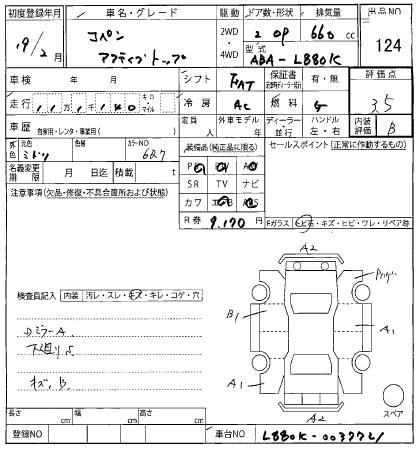 初度登録年月 車名・グレード 駆動 ドア数・形状 排気量 出品NO
19/2月 コペン アクティブトップ 2WD・4WD 2 OP 660 cc 124
型式 ABA-L880K
車検 年 月 シフト FAT 保証書 有・無 評価点
走行 11万1千140 キロ マイル 冷房 AC 燃料 G 3.5
車歴 自家用・レンタ・事業用( ) 定員 人 外車モデル 年 ディーラー・並行 ハンドル 左・右 内装評価 B
外色 元色 ミドリ 色替 カラーNO 6R7 装備品(純正品に限る) セールスポイント(正常に作動するもの)
名義変更期限 月 日迄 積載 t PS PW AW
注意事項(欠品・修復・不具合箇所および状態) SR TV ナビ
カワ エアB ABS
R券 9,170円 Fガラス ヒビ石・キズ・ヒビ・ワレ・リペア跡
A2
検査員記入 内装 汚レ・スレ・キズ・キレ・コゲ・穴
DミラーA
下廻りS
キズ、B
B1
A1
A1
A2
スペア
長さ cm 幅 cm 高さ cm
登録NO 車台NO L880K-0037721